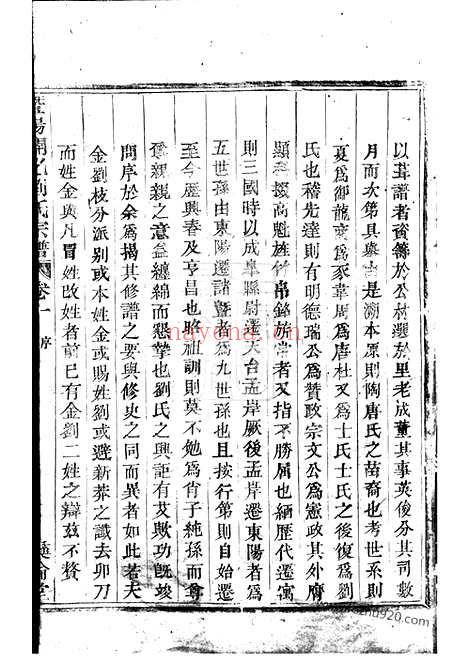 以葺譜者資籌於公材選於里老成董其事英後分其司數
月而次第具舉由是溯本原則陶唐氏之苗裔也考世系則
夏為御龍商為豕韋周為唐杜又為士氏士氏之後復為劉
氏也稽先達則有明德瑞公為贊政宗文公為憲政其外膺
顯科擢高魁旌竹帛銘旂常者又指不勝屈也緬歷代遷寓
則三國時以成皋縣尉遷天台孟岸厥後孟岸遷東陽者為
五世孫由東陽遷諸暨者為九世孫也且按行第則自始遷
至今歷興春及亨昌也昭祖訓則莫不勉為肖子純孫而奮
親親之意益纏綿而懇摯也劉氏之興詎有艾歟功既竣
問序於余為揭其修譜之要與修史之同而異者如此若夫
金劉枝分派別或本姓金或賜姓劉或避新莽之讖去卯刀
而姓金與凡冒姓改姓者前已有金劉二姓之辯茲不贅
暨陽開化劉氏宗譜 卷一 序
彝倫堂
nayona.cn
zutu5920.com